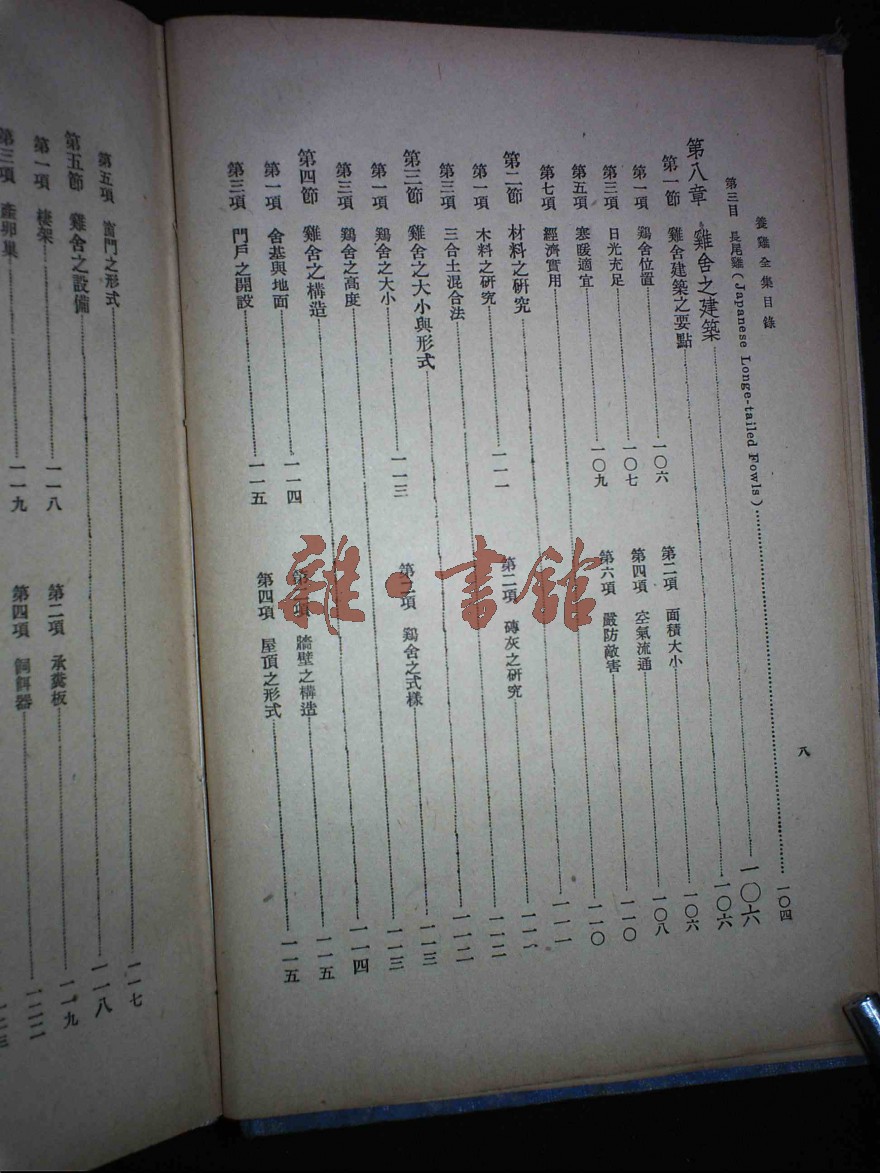 養雞全集目錄
八
第三目 長尾雞（Japanese Longe-tailed Fowls）一〇四
第八章 雞舍之建築 一〇六
第一節 雞舍建築之要點 一〇六
第一項 鷄舍位置 一〇六 第二項 面積大小 一〇六
第三項 日光充足 一〇七 第四項 空氣流通 一〇八
第五項 寒暖適宜 一〇九 第六項 嚴防敵害 一一〇
第七項 經濟實用 一一〇
第二節 材料之研究 一一一
第一項 木料之研究 一一一 第二項 磚灰之研究
第三項 三合土混合法 一一二
第三節 雞舍之大小與形式 一一二
第一項 鷄舍之大小 一一三 第二項 鷄舍之式樣 一一三
第三項 鷄舍之高度 一一三
第四節 雞舍之構造 一一四
第一項 舍基與地面 一一四 第二項 牆壁之構造 一一五
第三項 門戶之開設 一一五 第四項 屋頂之形式 一一五
第五項 窗門之形式 一一七
第五節 雞舍之設備 一一八
第一項 棲架 一一八 第二項 承糞板 一一九
第三項 產卵巢 一一九 第四項 飼餌器 一二二
雜·書館